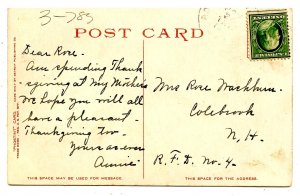 3-785
POST CARD
Dear Rose.
Am spending Thank
sgiving at My Mothers
We hope you will all
have a pleasant
Thanksgiving Too.
Yours as ever
Annie
Mrs Rose Washburn.
Colebrook
N. H.
R. F. D. No. 4.
THIS SPACE MAY BE USED FOR MESSAGE.
THIS SPACE IS FOR ADDRESS ONLY.